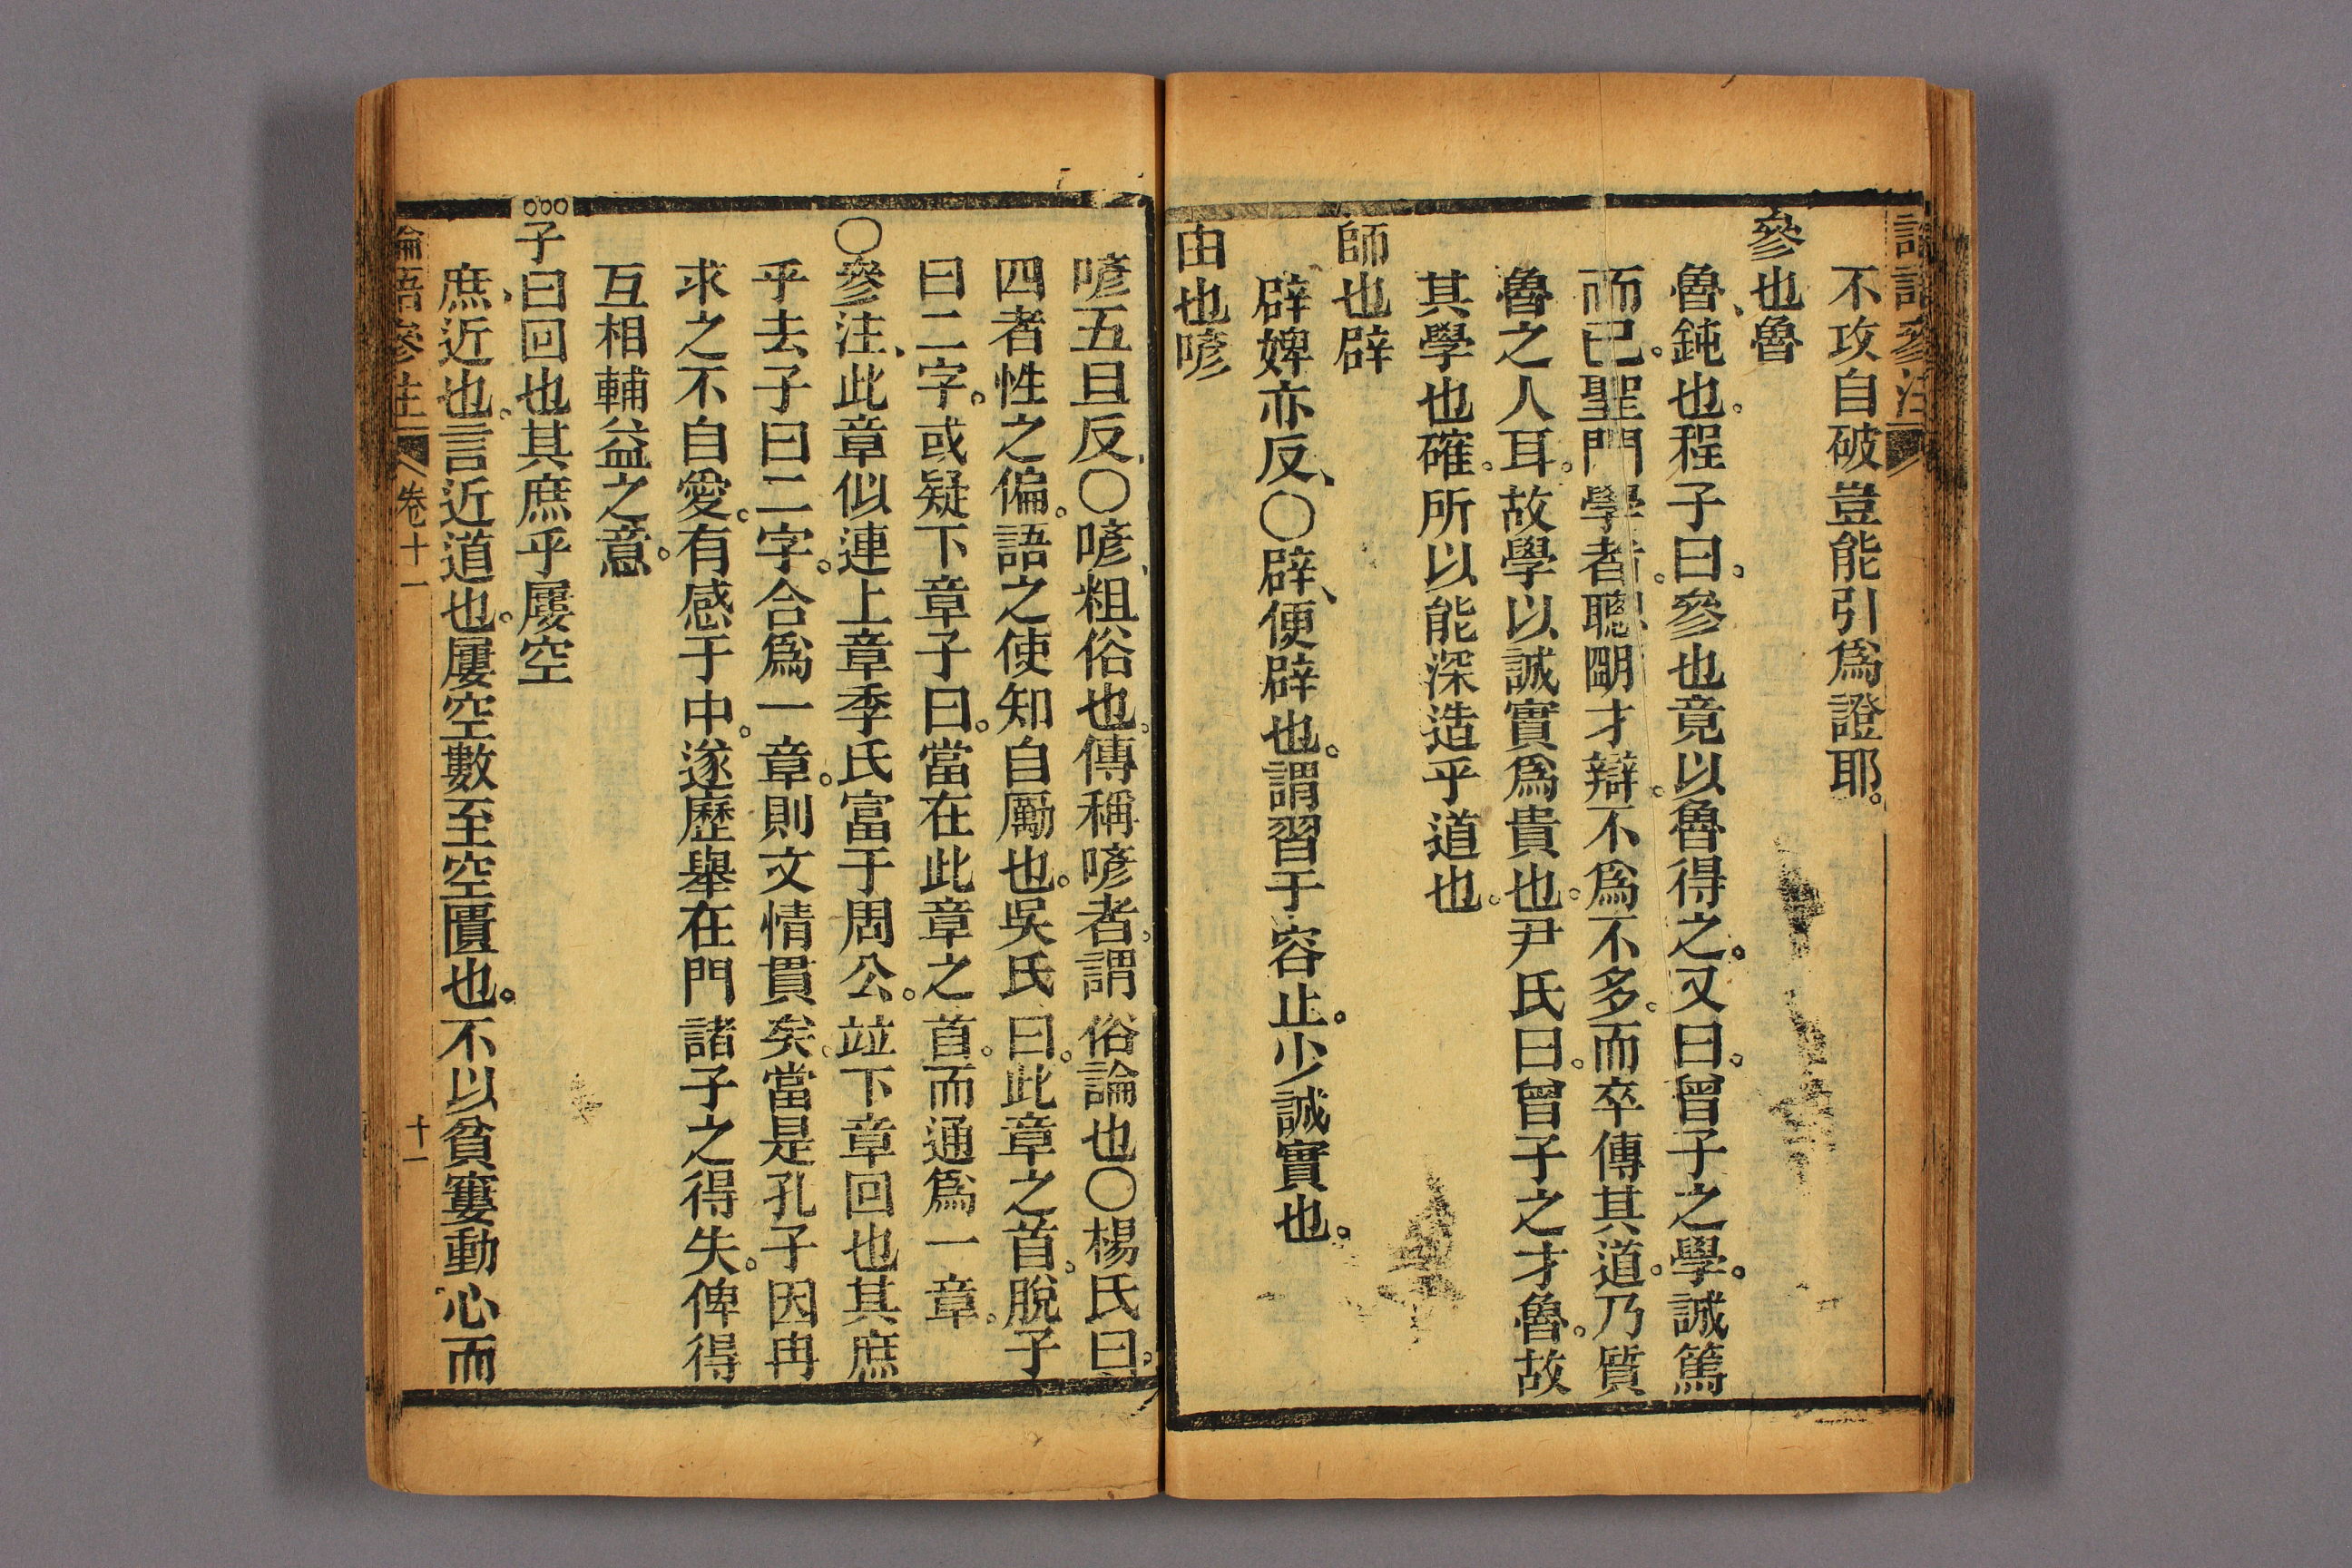 論語參注
不攻自破豈能引爲證耶。
參也魯
魯、鈍也。程子曰。參也竟以魯得之。又曰。曾子之學。誠篤
而已。聖門學者。聰明才辯。不爲不多。而卒傳其道。乃質
魯之人耳。故學以誠實爲貴也。尹氏曰。曾子之才魯。故
其學也確。所以能深造乎道也。
師也辟
辟婢亦反、○辟、便辟也。謂習于容止。少誠實也。
由也喭
喭五旦反、○喭、粗俗也。傳稱喭者。謂俗論也○楊氏曰。
四者性之偏。語之使知自厲也。吳氏曰。此章之首。脫子
曰二字。或疑下章子曰。當在此章之首。而通爲一章。
○參注、此章似連上章季氏富于周公。竝下章回也其庶
乎去子曰二字。合爲一章。則文情貫矣。當是孔子因冉
求之不自愛。有感于中。遂歷舉在門諸子之得失。俾得
互相輔益之意。
○○○子曰回也其庶乎屢空
庶、近也。言近道也。屢空數至空匱也。不以貧窶動心而
論語參注 卷十一 十一